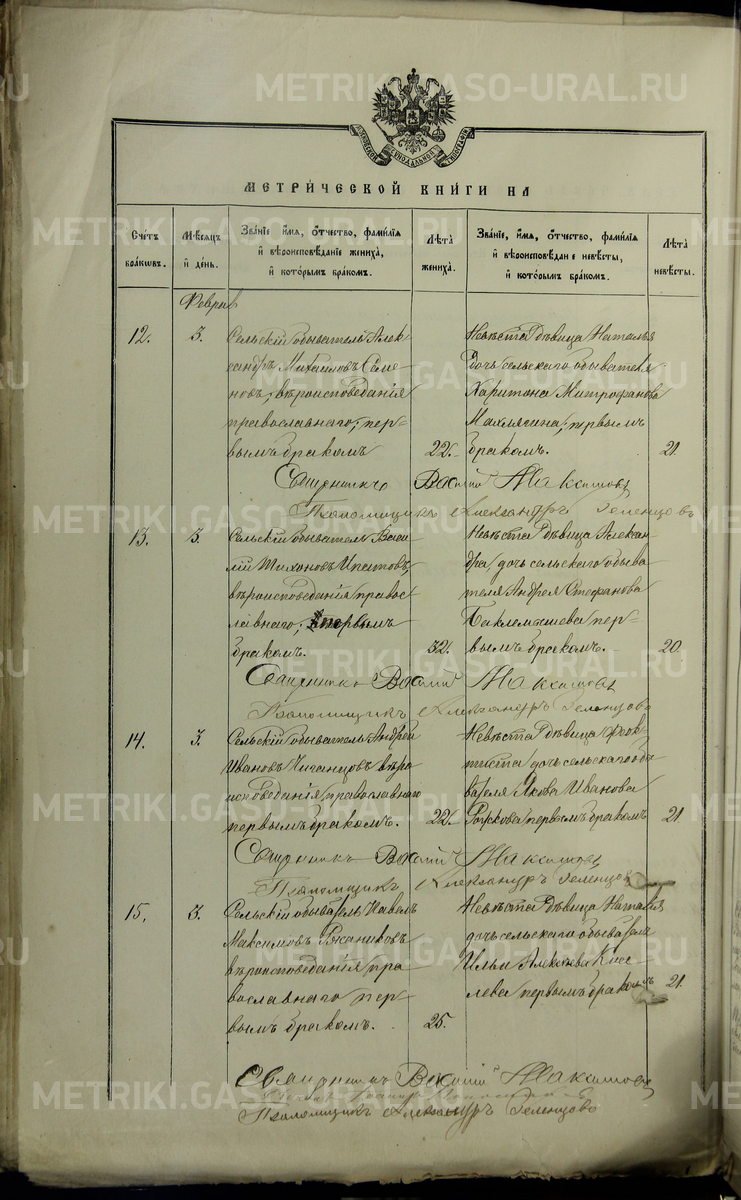 МОСКОВСКОЙ СѴНОДАЛЬНОЙ ТИПОГРАФІИ
МЕТРИ́ЧЕСКОЙ КНИ́ГИ НА
Счетъ бра́кѡвъ.
Мѣсяцъ и́ день.
Зва́нїе и́мя, ѻ҆́тчество, фами́лїя и́ вѣроисповѣ́данїе жениха̀, и́ кото́рымъ бра́комъ.
Лѣ́та жениха̀.
Зва́нїе, и́мя, ѻ҆́тчество, фами́лїя и́ вѣроисповѣ́данїе невѣ́сты, и́ кото́рымъ бра́комъ.
Лѣ́та невѣ́сты.
Февраль
12.
3.
Сельскій обыватель Алек-
сандръ Михаиловъ Семе-
новъ, вѣроисповеданія
православнаго, пер-
вымъ бракомъ
22.
Невѣста дѣвица Наталья
дочь сельскаго обывателя
Харитона Митрофанова
Махлягина, первымъ
бракомъ.
21.
Священникъ Василій Максимовъ
Псаломщикъ Александръ Зеленцовъ
13.
3.
Сельскій обыватель Васи-
лій Тихоновъ Ипатовъ,
вѣроисповѣданія правос-
лавнаго, первымъ
бракомъ.
32.
Невѣста дѣвица Алексан-
дра дочь сельскаго обыва-
теля Андрея Стефанова
Баклемышева пер-
вымъ бракомъ.
20.
Священникъ Василій Максимовъ
Псаломщикъ Александръ Зеленцовъ
14.
3.
Сельскій обыватель Андрей
Ивановъ Чиганцовъ вѣро
исповѣданія православнаго
первымъ бракомъ.
22.
Невѣста дѣвица Феок-
тиста дочь сельскаго обы
вателя Якова Иванова
Рожкова первымъ бракомъ
21
Священникъ Василій Максимовъ
Псаломщикъ Александръ Зеленцовъ
15.
3.
Сельскій обыватель Павелъ
Максимовъ Рясаниковъ
вѣроисповѣданія пра
вославнаго пер-
вымъ бракомъ.
25.
Невѣста дѣвица Наталія
дочь сельскаго обывателя
Ильи Алексѣева Кисе
лева первымъ бракомъ
21.
Священникъ Василій Максимовъ
Псаломщикъ Александръ Зеленцовъ
METRIKI.GASO-URAL.RU